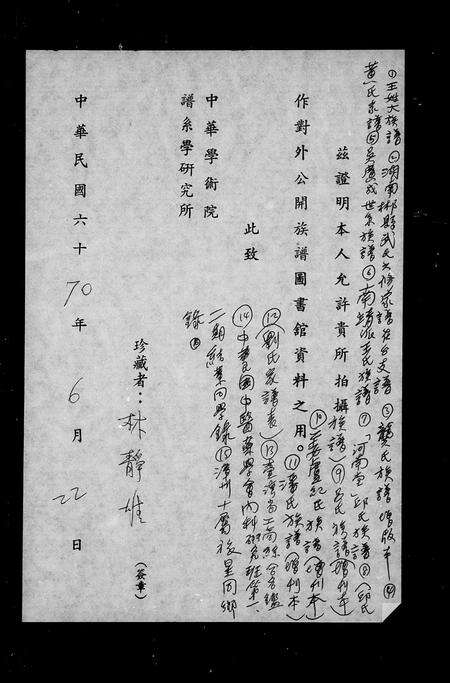 ①王姓大族譜②湖南郴縣武氏六修家譜在台支譜③龔氏族譜增版本④
黃氏家譜⑤吳廣成世系族譜⑥南靖派王氏族譜⑦「河南堂」邱氏族譜⑧(邱氏
族譜)⑨呂氏族譜(增刊本)
茲證明本人允許貴所拍攝
⑩(姜盧紀氏族譜)(增刊本)
作對外公開族譜圖書館資料之用。
⑪潘氏族譜(增刊本)
此致
⑫(劉氏家譜表)⑬臺灣省工商綜合名鑑
⑭中華民國中醫藥學會內科研究班第一、
二期結業同學錄⑮漳州十屬旅星同鄉
錄
中華學術院
譜系學研究所
珍藏者：林靜雄(簽章)
中華民國六十 70年6月22日